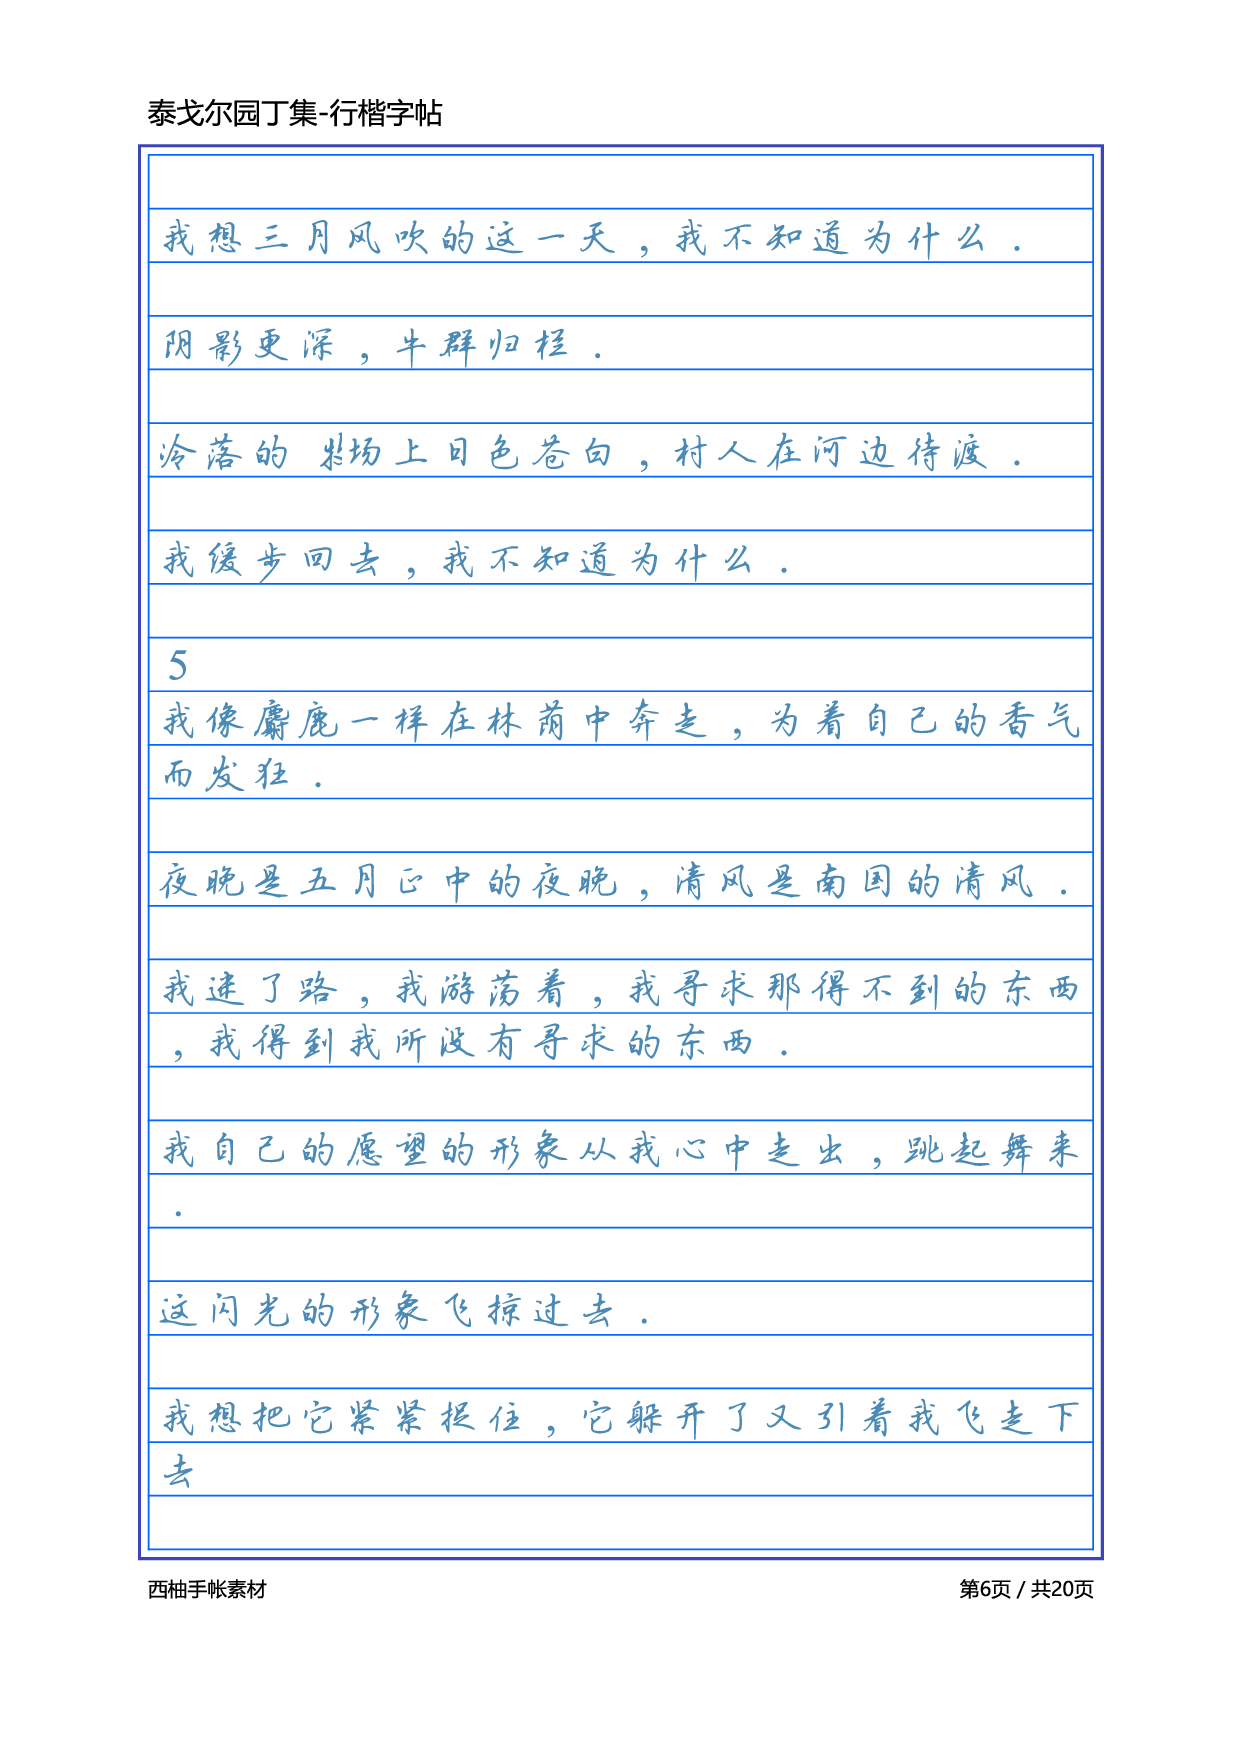 泰戈尔园丁集-行楷字帖
我想三月风吹的这一天，我不知道为什么．
阴影更深，牛群归栏．
冷落的 场上日色苍白，村人在河边待渡．
我缓步回去，我不知道为什么．
5
我像麝鹿一样在林荫中奔走，为着自己的香气
而发狂．
夜晚是五月正中的夜晚，清风是南国的清风．
我迷了路，我游荡着，我寻求那得不到的东西
，我得到我所没有寻求的东西．
我自己的愿望的形象从我心中走出，跳起舞来
．
这闪光的形象飞掠过去．
我想把它紧紧捉住，它躲开了又引着我飞走下
去
西柚手帐素材 第6页 / 共20页